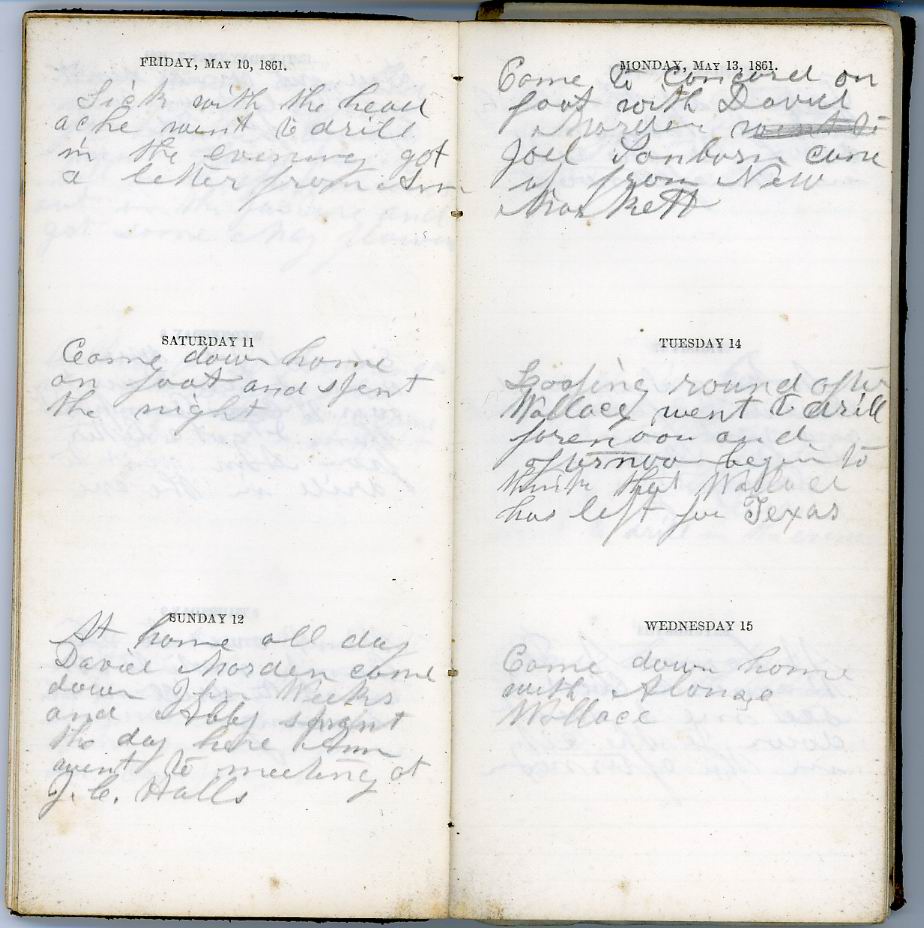 FRIDAY, MAY 10, 1861.
Sick with the head
ache went to drill
in the evening got
a letter from Ann
SATURDAY 11
Come down home
on foot and spent
the night
SUNDAY 12
At home all day
David Morden come
down Weeks
and Abby spent
the day here Ann
went to meeting at
J. C. Halls
MONDAY, MAY 13, 1861.
Come to Concord on
foot with David
Morden went to
Joel Sanborn come
up from New
Markett
TUESDAY 14
Loafing round after
Wallace went to drill
forenoon and
afternoon began to
think that Wallace
has left for Texas
WEDNESDAY 15
Come down home
with Alonzo
Wallace